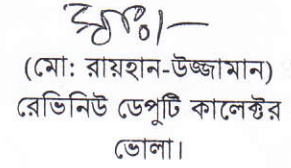 (মো: রায়হান-উজ্জামান)
রেভিনিউ ডেপুটি কালেক্টর
ভোলা।